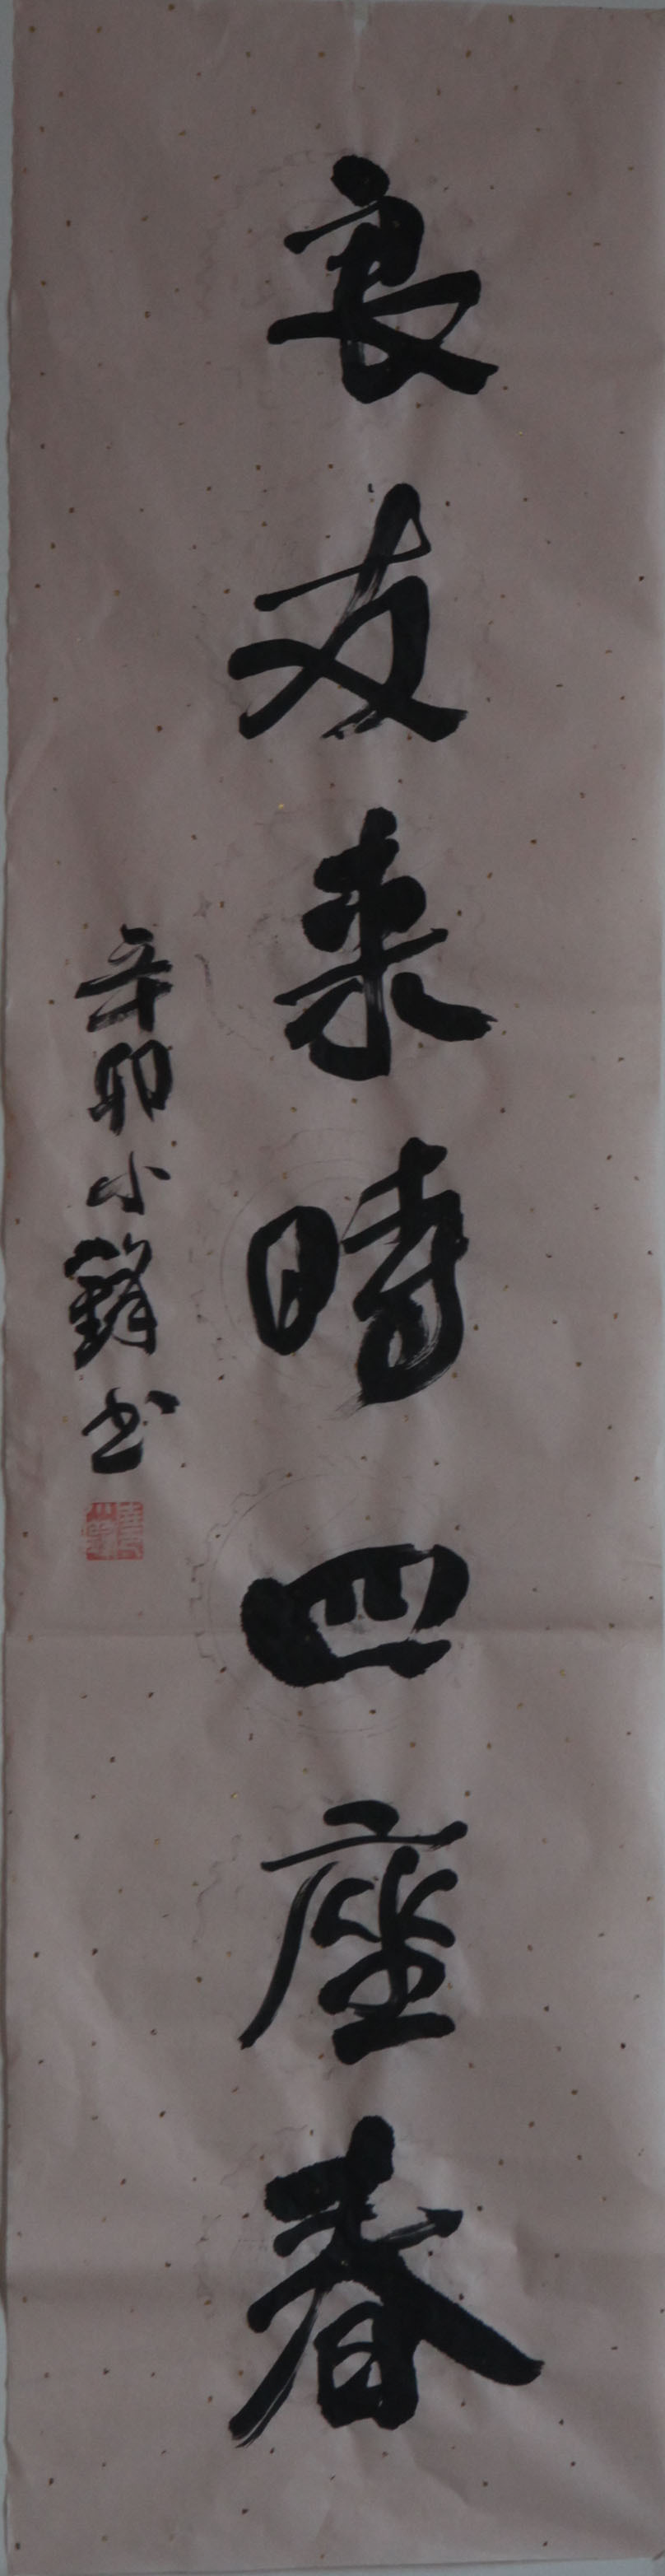 良友來時四座春
辛卯小鋒书